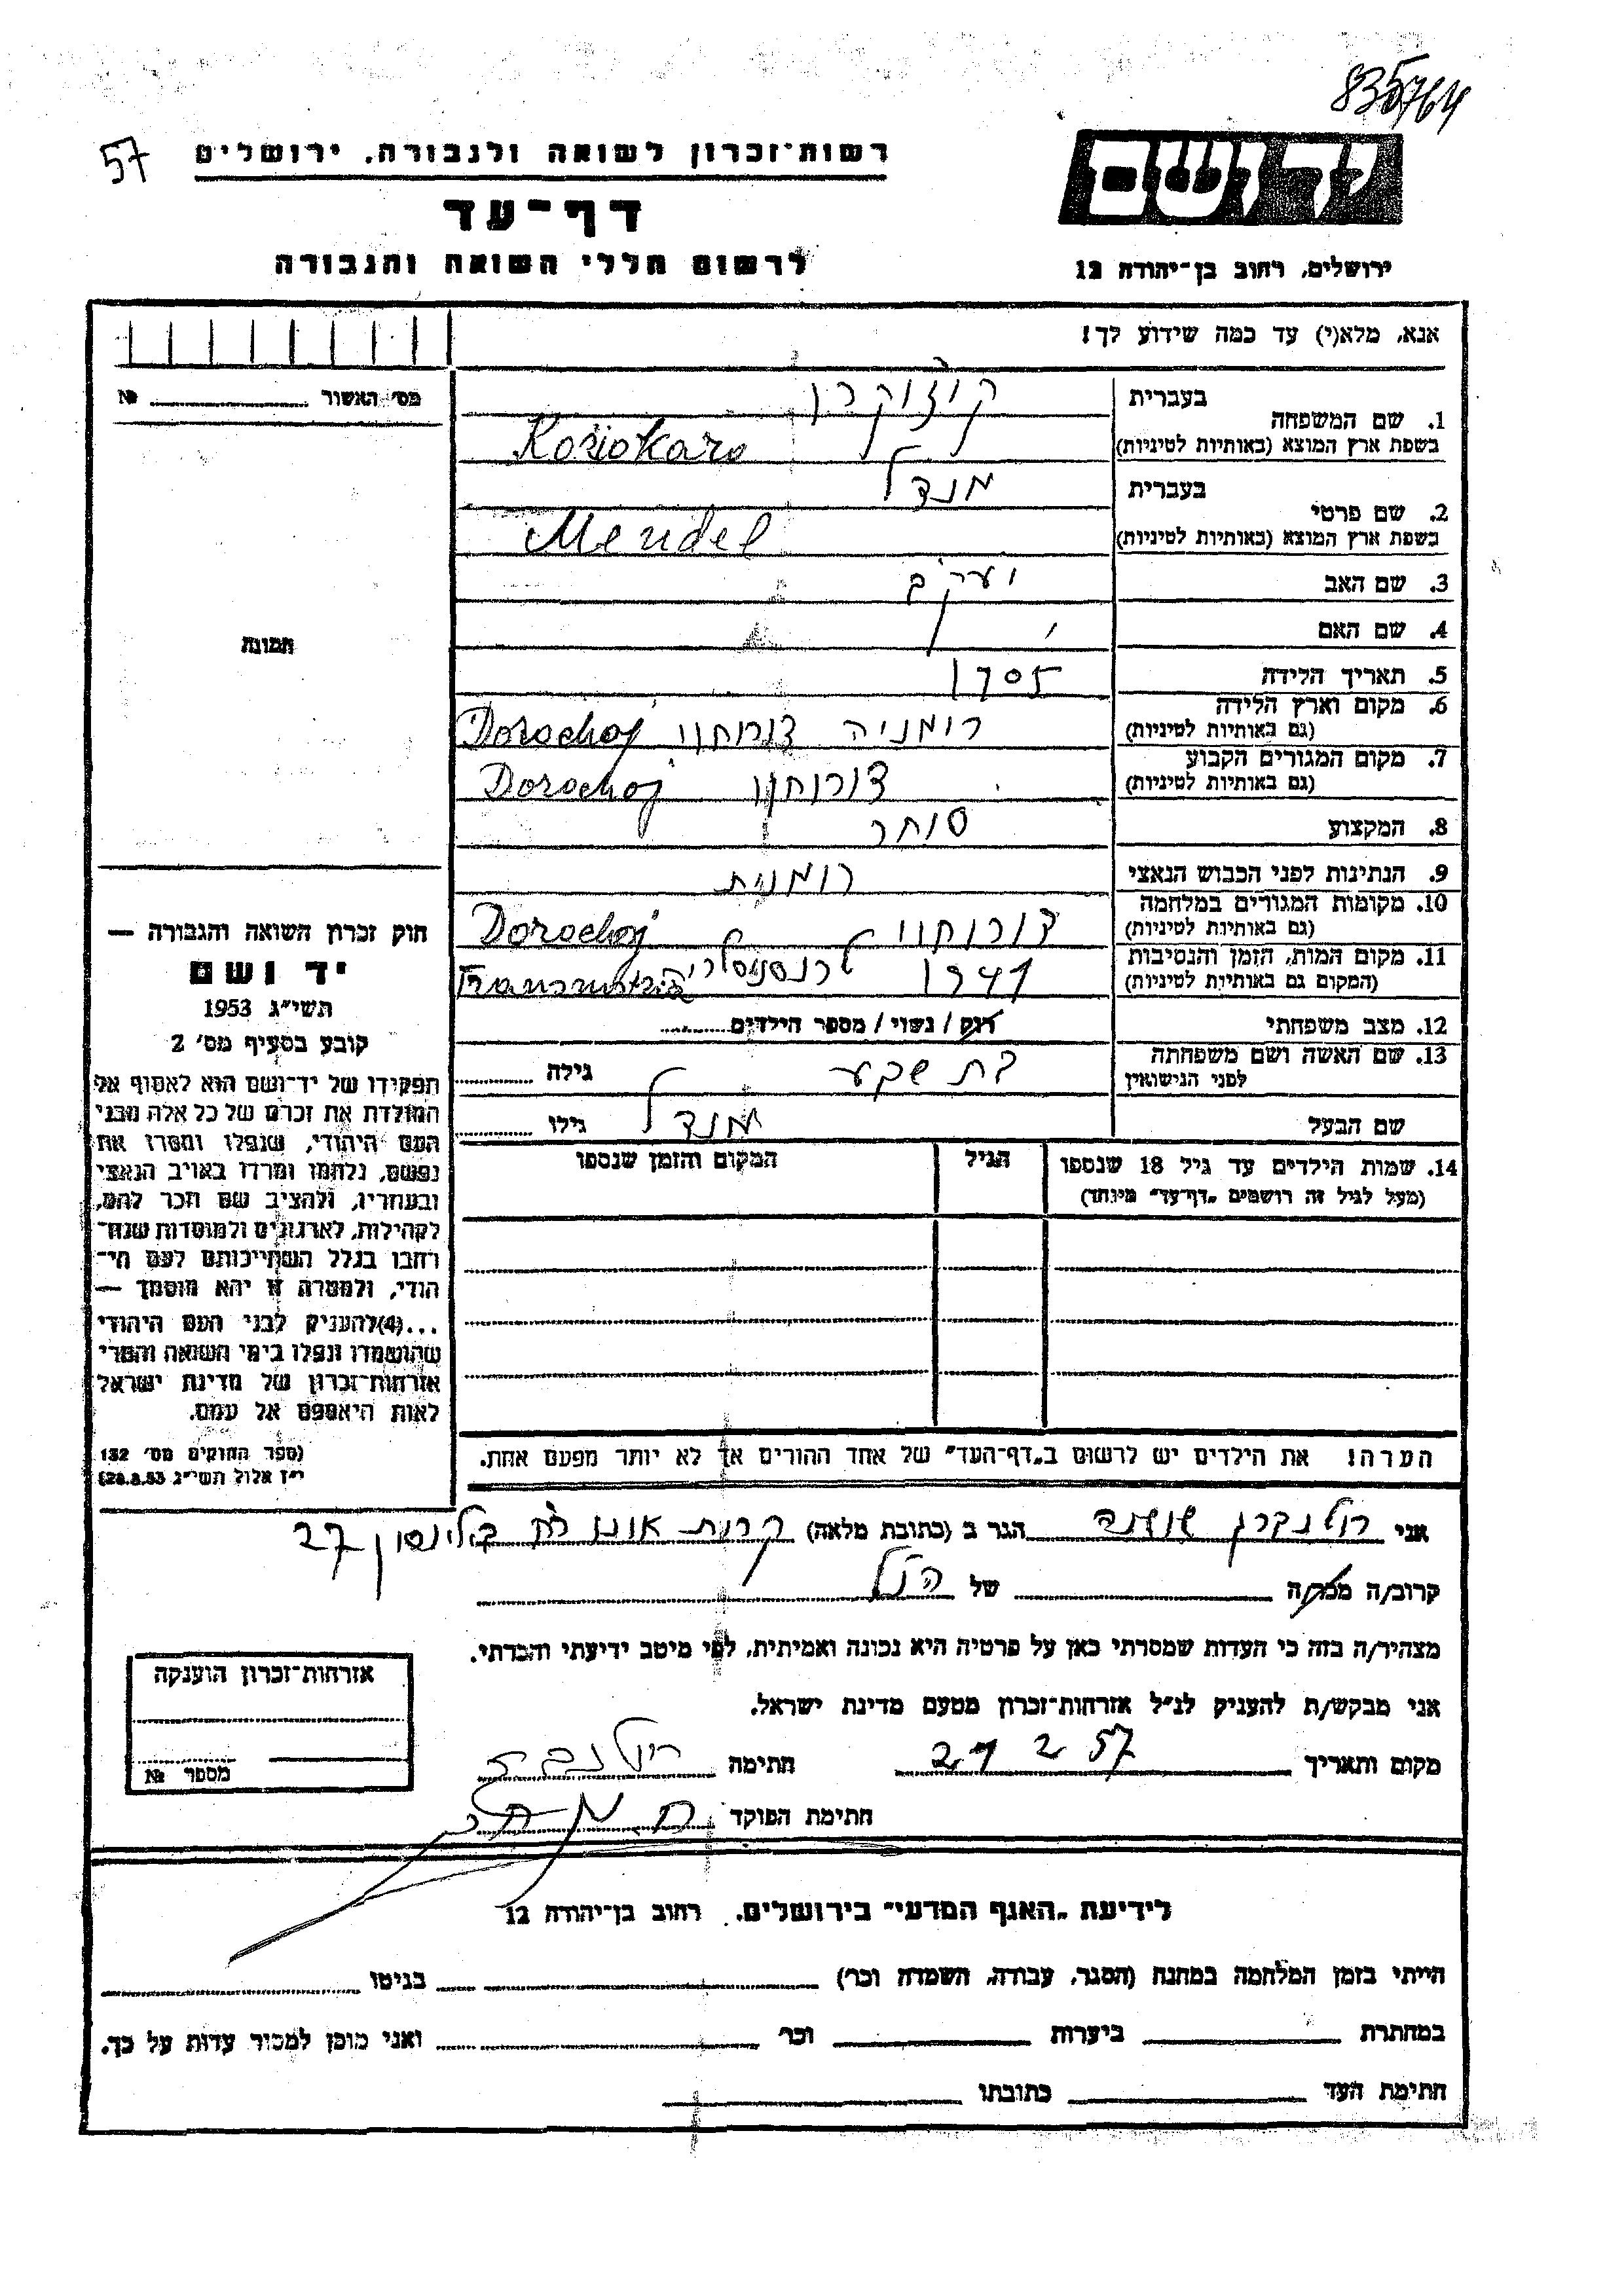 835764
57
רשות־זכרון לשואה ולגבורה, ירושלים
דף־עד
לרשום חללי השואה והגבורה
יד ושם
ירושלים, רחוב בן־יהודה 12
אנא, מלא(י) עד כמה שידוע לך!
מס׳ האשור №
1. שם המשפחה
בעברית
בשפת ארץ המוצא (באותיות לטיניות)
Kožokaro
2. שם פרטי
בעברית מנדל
בשפת ארץ המוצא (באותיות לטיניות) Mendel
3. שם האב יעקב
4. שם האם
5. תאריך הלידה 1905
6. מקום וארץ הלידה רומניה דורוחוי Dorochoj
(גם באותיות לטיניות)
7. מקום המגורים הקבוע דורוחוי Dorochoj
(גם באותיות לטיניות)
8. המקצוע סוחר
9. הנתינות לפני הכבוש הנאצי רומנית
10. מקומות המגורים במלחמה דורוחוי Dorochoj
(גם באותיות לטיניות)
11. מקום המות, הזמן והנסיבות 1941
(המקום גם באותיות לטיניות)
12. מצב משפחתי רווק / נשוי / מספר הילדים
13. שם האשה ושם משפחתה בת שבע גילה
לפני הנישואין
שם הבעל מנדל גילו
14. שמות הילדים עד גיל 18 שנספו הגיל המקום והזמן שנספו
(מעל לגיל זה רושמים „דף־עד״ מיוחד)
הערה! את הילדים יש לרשום ב„דף־העד״ של אחד ההורים אך לא יותר מפעם אחת.
תמונה
חוק זכרון השואה והגבורה —
יד ושם
תשי״ג 1953
קובע בסעיף מס׳ 2
תפקידו של יד־ושם הוא לאסוף אל
המולדת את זכרם של כל אלה מבני
העם היהודי, שנפלו ומסרו את
נפשם, נלחמו ומרדו באויב הנאצי
ובעוזריו, ולהציב שם וזכר להם,
לקהילות, לארגונים ולמוסדות שנח־
רחבו בגלל השתייכותם לעם הי־
הודי, ולמטרה זו יהא מוסמך —
...(4)להעניק לבני העם היהודי
שהושמדו ונפלו בימי השואה והמרי
אזרחות־זכרון של מדינת ישראל
לאות היאספם אל עמם.
(ספר החוקים מס׳ 132
י״ז אלול תשי״ג 28.8.53)
אני שושנה הגר ב (כתובת מלאה) קרית אונו רח 27
קרוב/ה מכר/ה של הנ״ל
מצהיר/ה בזה כי העדות שמסרתי כאן על פרטיה היא נכונה ואמיתית, לפי מיטב ידיעתי והכרתי.
אני מבקש/ת להעניק לנ״ל אזרחות־זכרון מטעם מדינת ישראל.
מקום ותאריך 21 2 57 חתימה
חתימת הפוקד
אזרחות־זכרון הוענקה
מספר №
לידיעת „האגף המדעי״ בירושלים, רחוב בן־יהודה 12
הייתי בזמן המלחמה במחנה (הסגר, עבודה, השמדה וכו׳) בגיטו
במחתרת ביערות וכו׳ ואני מוכן למסור עדות על כך.
חתימת העד כתובתו